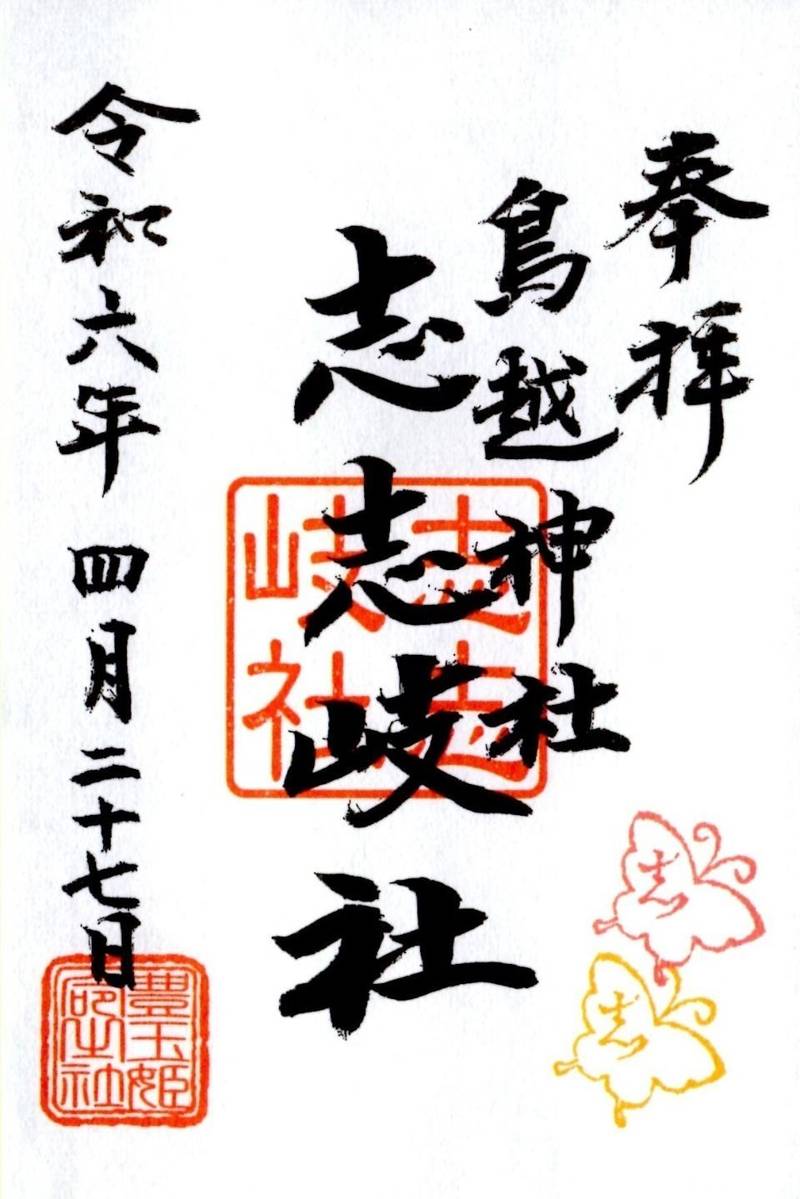 奉拝
鳥越神社
志志岐社
志志
岐社
令和六年 四月二十七日
豐玉姫
命之社
志
志